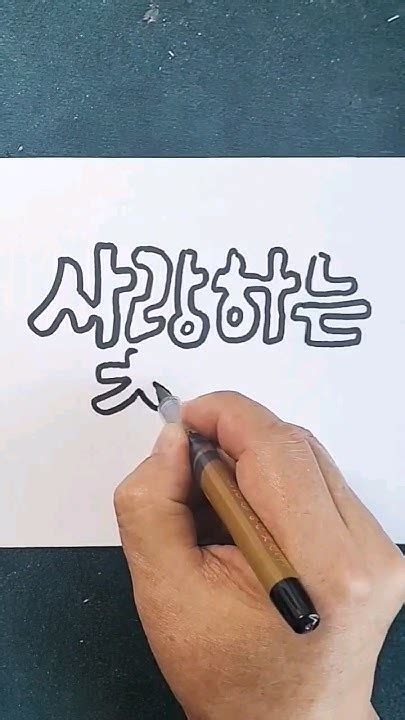 사랑하는